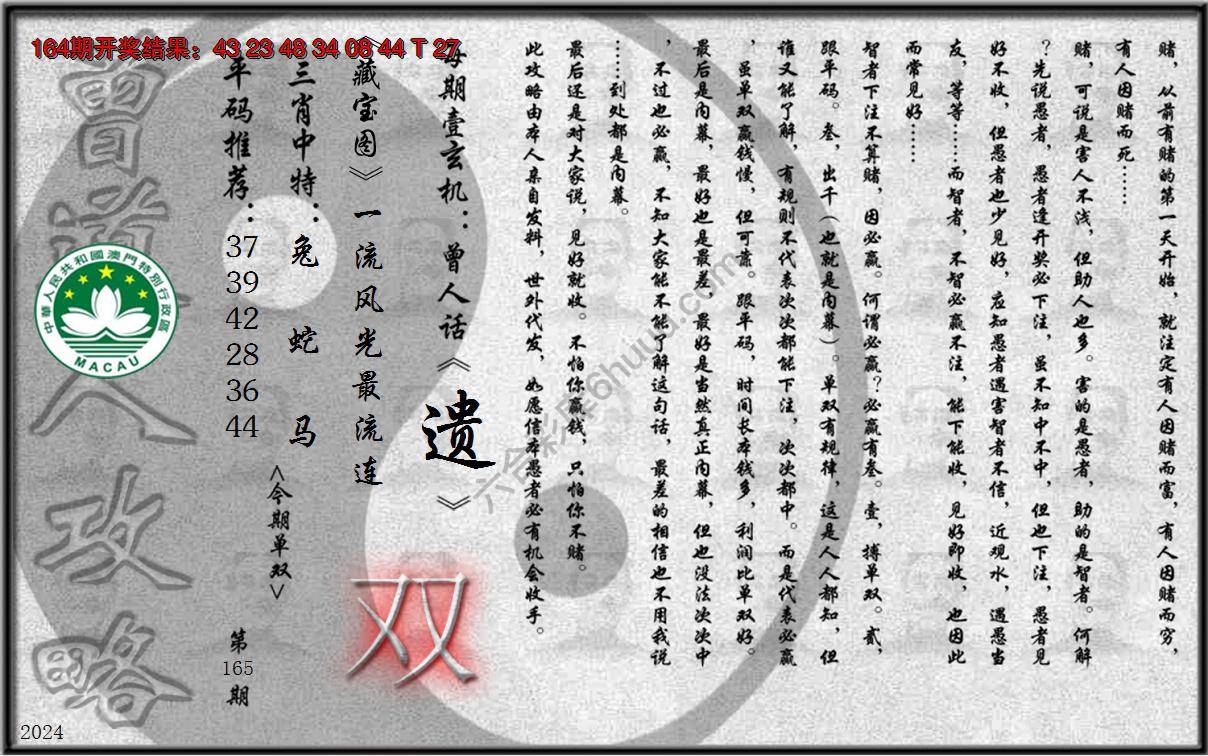 164期开奖结果：43 23 48 34 08 44 T 27
赌，从前有赌的第一天开始，就注定有人因赌而富，有人因赌而穷，
有人因赌而死……
赌，可说是害人不浅，但助人也多。害的是愚者，助的是智者。何解
？先说愚者，愚者逢开奖必下注，虽不知中不中，但也下注，愚者见
好不收，但愚者也少见好，应知愚者遇害智者不信，近观水，遇愚当
友，等等……而智者，不智必赢不注，能下能收，见好即收，也因此
而常见好……
智者下注不算赌，因必赢。何谓必赢？必赢有叁。壹，搏单双。贰，
跟平码。叁，出千（也就是内幕）。单双有规律，这是人人都知，但
谁又能了解，有规则不代表次次都能下注，次次都中。而是代表必赢
，虽单双赢钱慢，但可靠。跟平码，时间长本钱多，利润比单双好。
最后是内幕，最好也是最差，最好是当然真正内幕，但也没法次次中
，不过也必赢，不知大家能不能了解这句话，最差的相信也不用我说
……到处都是内幕。
最后还是对大家说，见好就收。不怕你赢钱，只怕你不赌。
此攻略由本人亲自发料，世外代发，如愿信本愚者必有机会收手。
每期壹玄机：曾人话《遗》
《藏宝图》一流风光最流连
三肖中特：兔 蛇 马
平码推荐：
37
39
42
28
36
44
<今期单双>
双
第
165
期
曾道人攻略
中華人民共和國澳門特別行政區
MACAU
六合彩库6huuu.com
2024